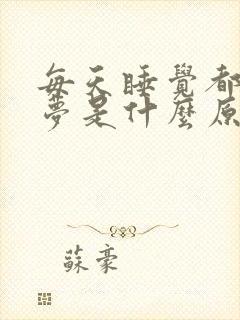 每天睡覺都
夢是什麼原
蘇豪